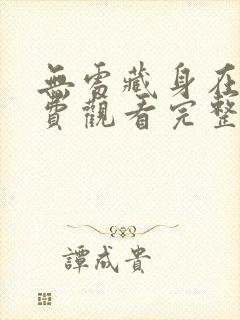 無處藏身在
費觀看完整
譚成貴